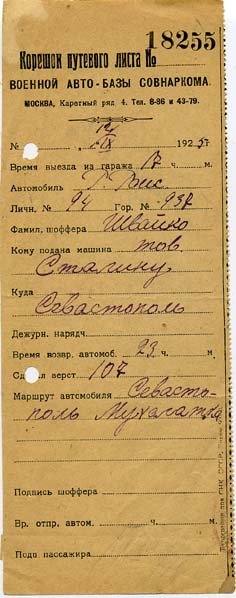 18255
Корешок путевого листа №
ВОЕННОЙ АВТО-БАЗЫ СОВНАРКОМА.
МОСКВА, Каретный ряд 4. Тел. 8-86 и 43-79.
№ IX 1925 г.
Время выезда из гаража 17 ч. м.
Автомобиль Р. Ройс
Личн. № 94 Гор. № 937
Фамил. шоффера Швайко
Кому подана машина тов.
Сталину
Куда
Севастополь
Дежурн. нарядч.
Время возвр. автомоб. 23 ч. м.
Сд л верст 107
Маршрут автомобиля Севасто-
поль Мухалатка
Подпись шоффера
Вр. отпр. автом. ч. м.
Подп пассажира